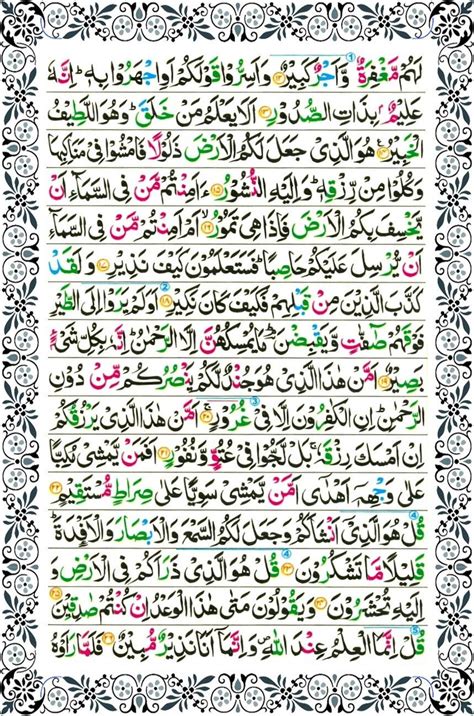 لَهُمْ مَّغْفِرَةٌ وَّاَجْرٌ كَبِيْرٌ ۝۱۲ وَاَسِرُّوْا قَوْلَكُمْ اَوِ اجْهَرُوْا بِهٖ ؕ اِنَّهٗ
عَلِيْمٌۢ بِذَاتِ الصُّدُوْرِ ۝۱۳ اَلَا يَعْلَمُ مَنْ خَلَقَ ؕ وَهُوَ اللَّطِيْفُ
الْخَبِيْرُ ۝۱۴ هُوَ الَّذِيْ جَعَلَ لَكُمُ الْاَرْضَ ذَلُوْلًا فَامْشُوْا فِيْ مَنَاكِبِهَا
وَكُلُوْا مِنْ رِّزْقِهٖ ؕ وَاِلَيْهِ النُّشُوْرُ ۝۱۵ ءَاَمِنْتُمْ مَّنْ فِي السَّمَآءِ اَنْ
يَّخْسِفَ بِكُمُ الْاَرْضَ فَاِذَا هِيَ تَمُوْرُ ۝۱۶ اَمْ اَمِنْتُمْ مَّنْ فِي السَّمَآءِ
اَنْ يُّرْسِلَ عَلَيْكُمْ حَاصِبًا ؕ فَسَتَعْلَمُوْنَ كَيْفَ نَذِيْرِ ۝۱۷ وَلَقَدْ
كَذَّبَ الَّذِيْنَ مِنْ قَبْلِهِمْ فَكَيْفَ كَانَ نَكِيْرِ ۝۱۸ اَوَلَمْ يَرَوْا اِلَى الطَّيْرِ
فَوْقَهُمْ صٰٓفّٰتٍ وَّيَقْبِضْنَ ؕ مَا يُمْسِكُهُنَّ اِلَّا الرَّحْمٰنُ ؕ اِنَّهٗ بِكُلِّ شَيْءٍۭ
بَصِيْرٌ ۝۱۹ اَمَّنْ هٰذَا الَّذِيْ هُوَ جُنْدٌ لَّكُمْ يَنْصُرُكُمْ مِّنْ دُوْنِ
الرَّحْمٰنِ ؕ اِنِ الْكٰفِرُوْنَ اِلَّا فِيْ غُرُوْرٍ ۝۲۰ اَمَّنْ هٰذَا الَّذِيْ يَرْزُقُكُمْ
اِنْ اَمْسَكَ رِزْقَهٗ ۚ بَلْ لَّجُّوْا فِيْ عُتُوٍّ وَّنُفُوْرٍ ۝۲۱ اَفَمَنْ يَّمْشِيْ مُكِبًّا
عَلٰى وَجْهِهٖٓ اَهْدٰٓى اَمَّنْ يَّمْشِيْ سَوِيًّا عَلٰى صِرَاطٍ مُّسْتَقِيْمٍ ۝۲۲
قُلْ هُوَ الَّذِيْٓ اَنْشَاَكُمْ وَجَعَلَ لَكُمُ السَّمْعَ وَالْاَبْصَارَ وَالْاَفْـِٕدَةَ ؕ
قَلِيْلًا مَّا تَشْكُرُوْنَ ۝۲۳ قُلْ هُوَ الَّذِيْ ذَرَاَكُمْ فِي الْاَرْضِ وَ
اِلَيْهِ تُحْشَرُوْنَ ۝۲۴ وَيَقُوْلُوْنَ مَتٰى هٰذَا الْوَعْدُ اِنْ كُنْتُمْ صٰدِقِيْنَ ۝۲۵
قُلْ اِنَّمَا الْعِلْمُ عِنْدَ اللّٰهِ ۪ وَاِنَّمَآ اَنَا نَذِيْرٌ مُّبِيْنٌ ۝۲۶ فَلَمَّا رَاَوْهُ